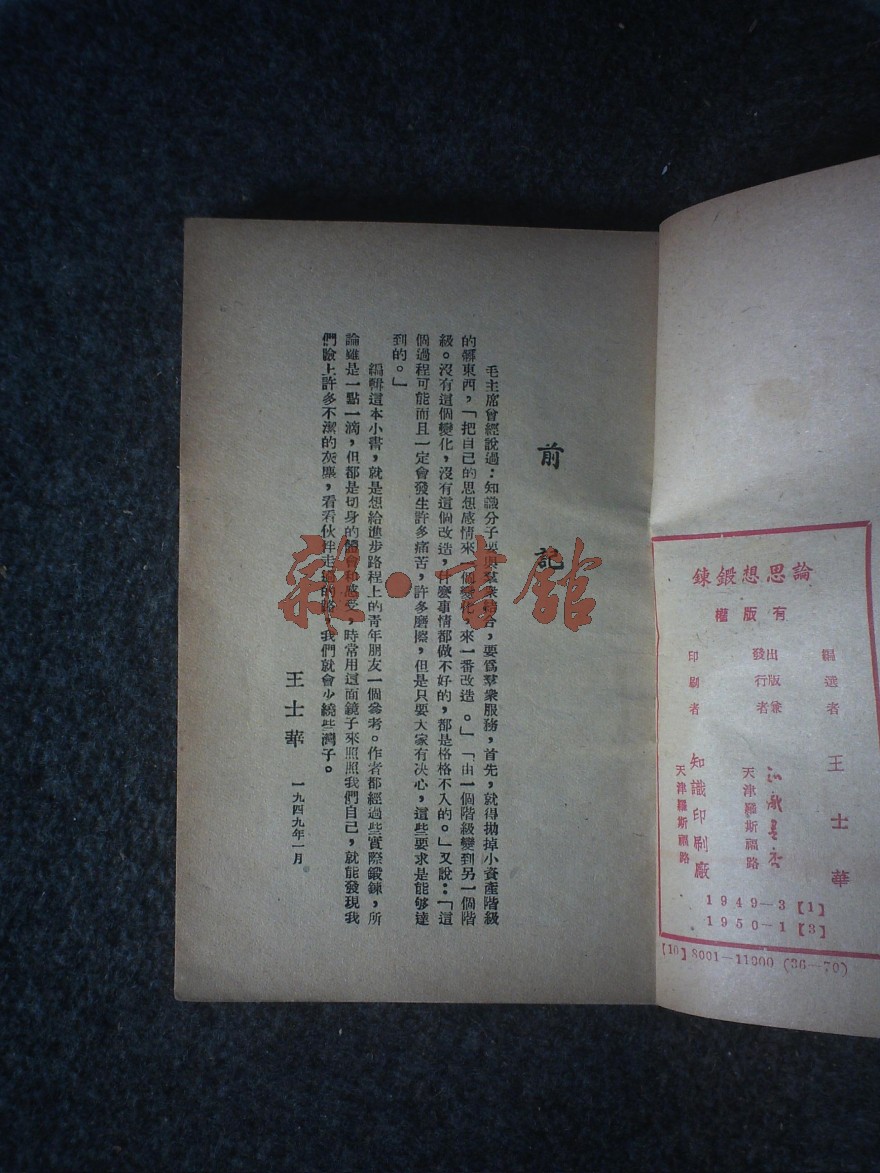 論思想鍛鍊
有版權
編選者
王士華
出版兼
發行者
知識書店
天津羅斯福路
印刷者
知識印刷廠
天津羅斯福路
1949—3【1】
1950—1【3】
【10】8001—11000 (36—70)
前記
毛主席曾經說過：知識分子要與羣衆結合，要爲羣衆服務，首先，就得拋掉小資產階級
的髒東西，「把自己的思想感情來一個變化，來一番改造。」「由一個階級變到另一個階
級。沒有這個變化，沒有這個改造，什麼事情都做不好的，都是格格不入的。」又說：「這
個過程可能而且一定會發生許多痛苦，許多磨擦，但是只要大家有决心，這些要求是能够達
到的。」
編輯這本小書，就是想給進步路程上的青年朋友一個參考。作者都經過些實際鍛鍊，所
論雖是一點一滴，但都是切身的體會和感受，時常用這面鏡子來照照我們自己，就能發現我
們臉上許多不潔的灰塵，看看伙伴走過的路，我們就會少繞些灣子。
王士華 一九四九年一月
雜·書館